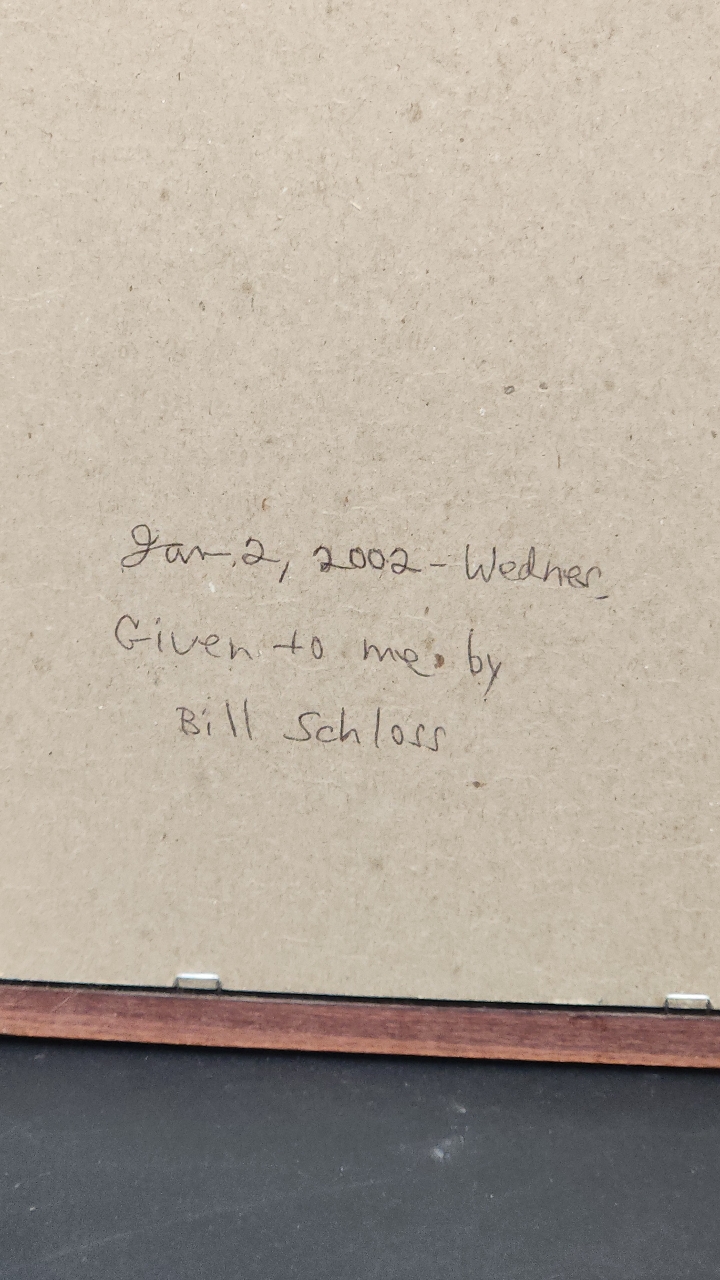 Jan. 2, 2002 - Wednes.
Given to me by
Bill Schloss